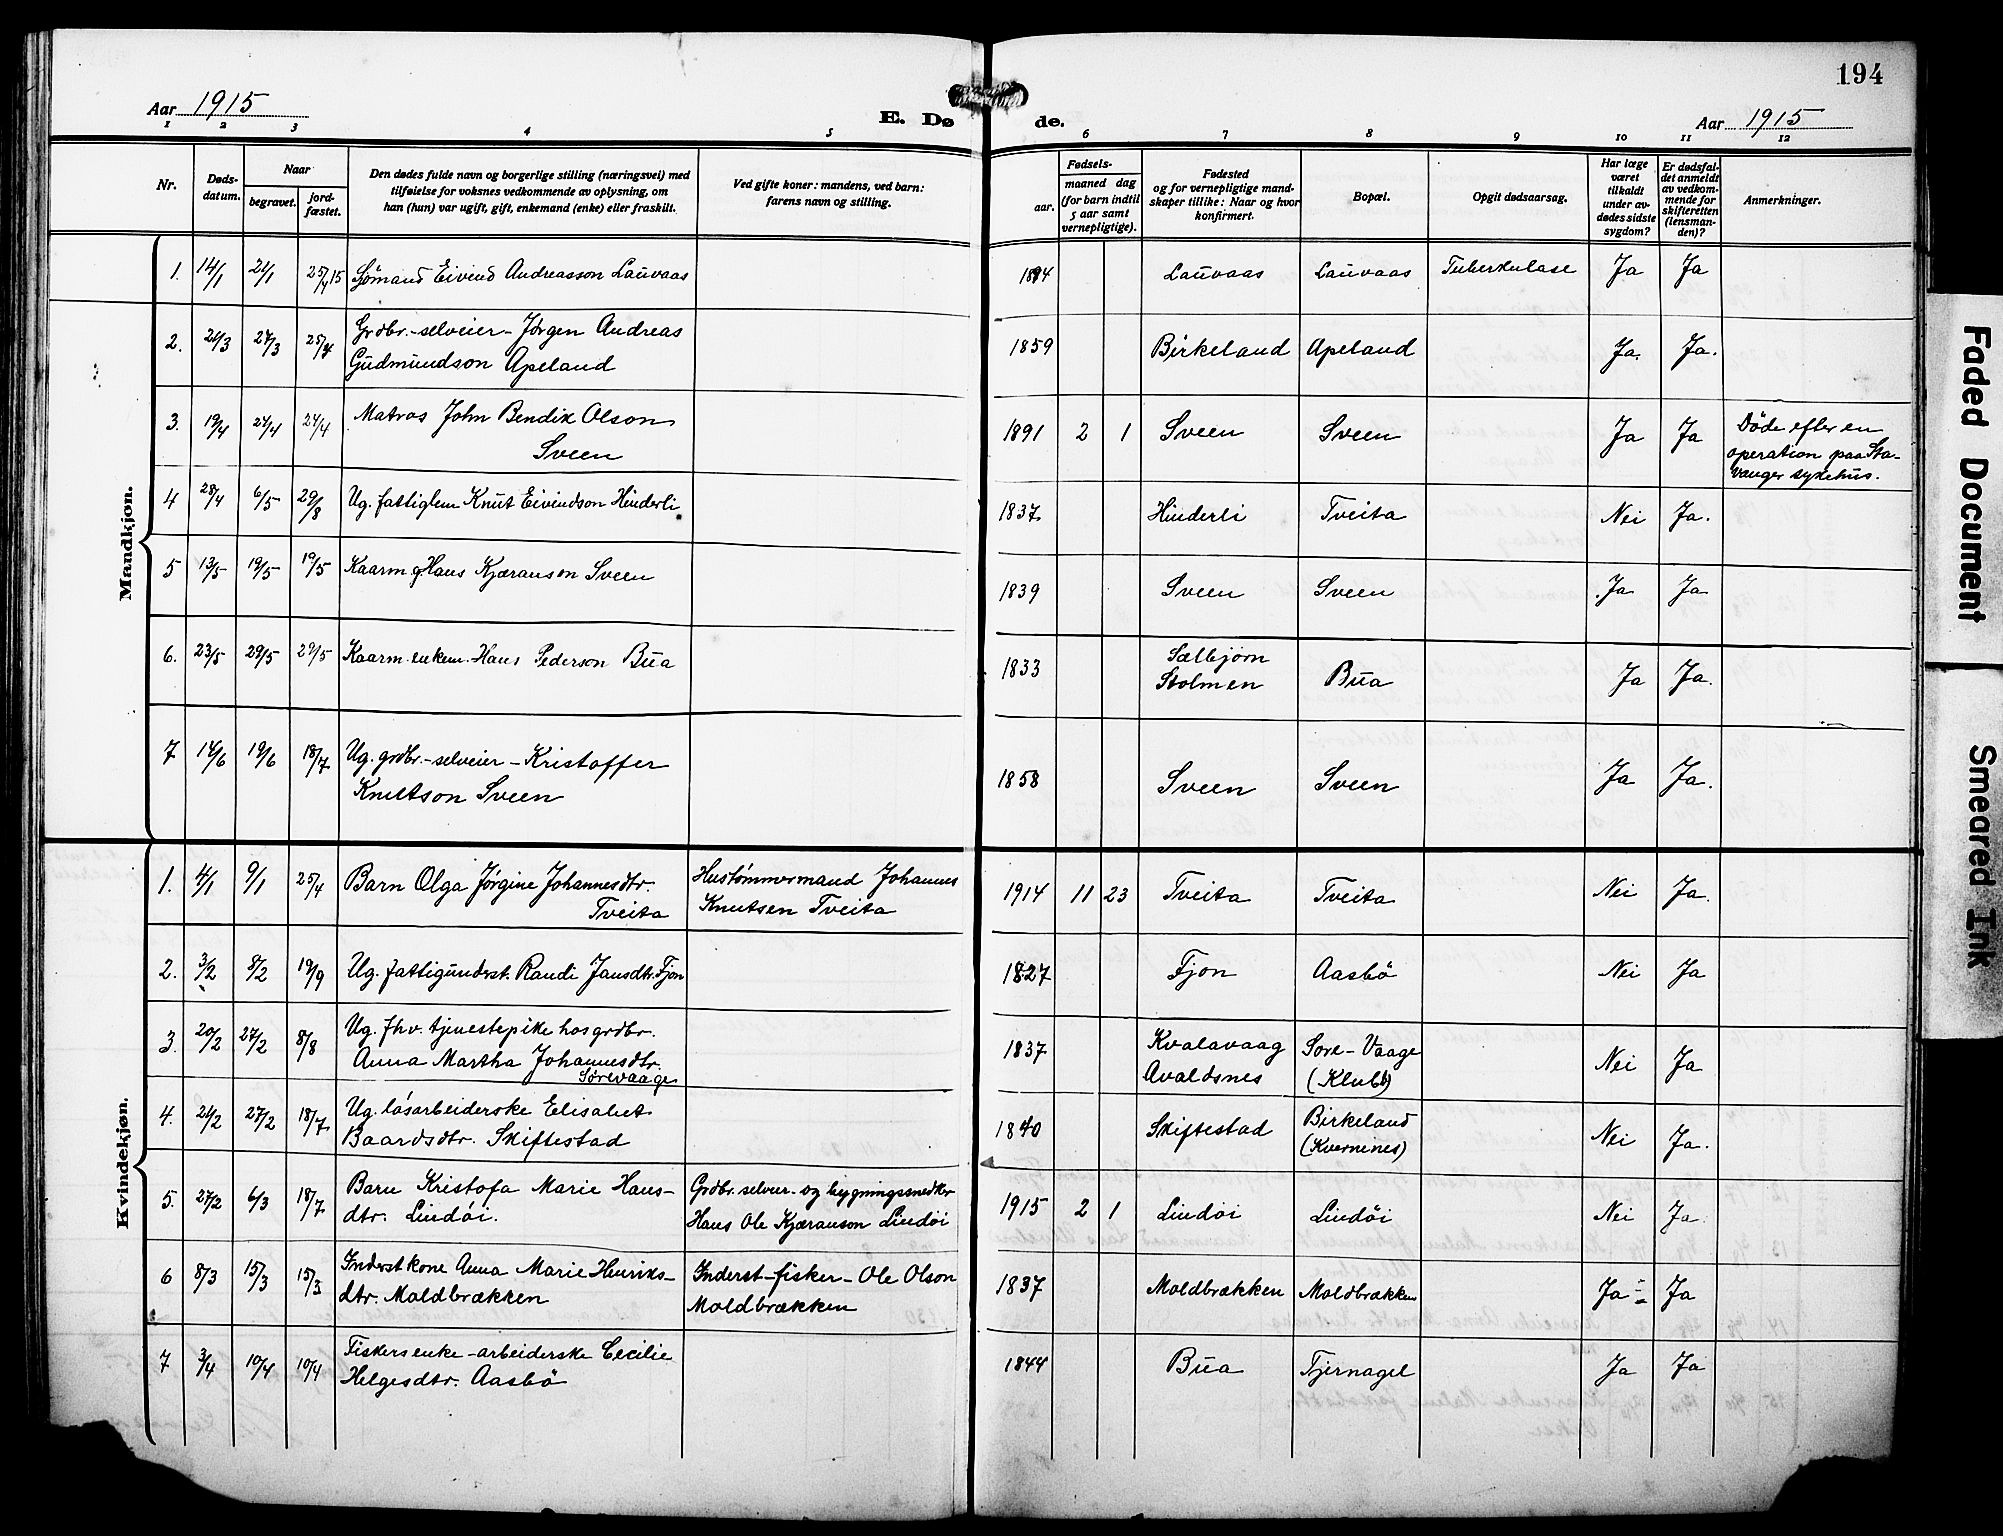 194
Aar 1915
E. Dø de.
Aar 1915
1 2 3 4 5 6 7 8 9 10 11 12
Nr.
Døds-
datum.
Naar
begravet.
jord-
fæstet.
Den dødes fulde navn og borgerlige stilling (næringsvei) med
tilføielse for voksnes vedkommende av oplysning, om
han (hun) var ugift, gift, enkemand (enke) eller fraskilt.
Ved gifte koner: mandens, ved barn:
farens navn og stilling.
Fødsels-
aar.
maaned dag
(for barn indtil
5 aar samt
vernepligtige).
Fødested
og for vernepligtige mand-
skaper tillike: Naar og hvor
konfirmert.
Bopæl.
Opgit dødsaarsag.
Har læge
været
tilkaldt
under av-
dødes sidste
sygdom?
Er dødsfal-
det anmeldt
av vedkom-
mende for
skifteretten
(lensman-
den)?
Anmerkninger.
Mandkjøn.
1. 14/1 21/1 25/4 15 Sjömand Eivind Andreasson Lauvaas 1894 Lauvaas Lauvaas Tuberkulase Ja Ja
2. 21/3 27/3 25/4 Grdbr.-selveier-Jørgen Andreas
Gudmundson Apeland 1859 Birkeland Apeland Ja. Ja.
3. 19/4 24/4 24/4 Matros John Bendik Olson
Sveen 1891 2 1 Sveen Sveen Ja Ja Döde efter en
operation paa Sta-
vanger sykehus.
4 28/4 6/5 29/8 Ug. fattiglem Knut Eivindson Hinderli 1837 Hinderli Tveita Nei Ja.
5 13/5 19/5 19/5 Kaarm g. Hans Kjæranson Sveen 1839 Sveen Sveen Ja Ja
6. 23/5 29/5 29/5 Kaarm. enkem. Hans Pederson Bua 1833 Sælbjørn
Stolmen Bua Ja Ja.
7 14/6 19/6 18/7 Ug. grdbr.-selveier-Kristoffer
Knutson Sveen 1858 Sveen Sveen Ja Ja.
Kvindekjøn.
1. 4/1 9/1 25/4 Barn Olga Jørgine Johannesdtr.
Tveita Hustömmermand Johannes
Knutsen Tveita 1914 11 23 Tveita Tveita Nei Ja.
2. 3/2 8/2 19/9 Ug. fattigunderst. Randi Jansdtr. Fjon 1827 Fjon Aasbö Nei Ja
3. 20/2 27/2 8/8 Ug. fhv. tjenestepike hos grdbr.
Anna Martha Johannesdtr.
Sørevaage 1837 Kvalavaag
Avaldsnes Søre-Vaage
(Klubb) Nei Ja
4. 21/2 27/2 18/7 Ug. lösarbeiderske Elisabet
Baardsdtr. Skiftestad 1840 Skiftestad Birkeland
(Kvernines) Nei Ja.
5. 27/2 6/3 18/7 Barn Kristofa Marie Hans-
dtr. Lindöi. Grdbr. selveier- og bygningssnedker
Hans Ole Kjæranson Lindöi 1915 2 1 Lindöi Lindöi Nei Ja
6 8/3 15/3 15/3 Inderst kone Anna Marie Henriks-
dtr. Moldbrækken Inderst-fisker-Ole Olson
Moldbrækken 1837 Moldbrækken Moldbrækken Ja Ja
7 3/4 10/4 10/4 Fiskers enke-arbeiderske Cecilie
Helgesdtr. Aasbö 1844 Bua Tjernagel Ja Ja
Faded Document
Smeared Ink